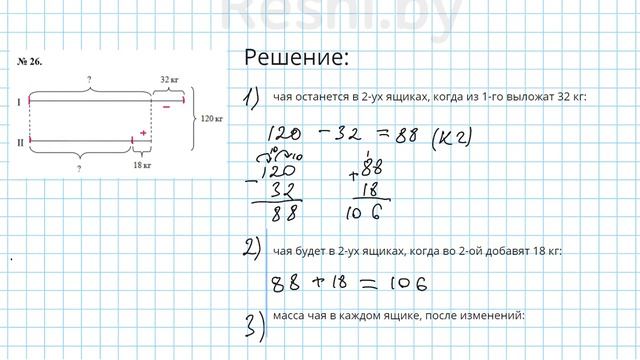 Reshi.by
Решение:
№ 26.
?
32 кг
I
−
120 кг
+
II
?
18 кг
1) чая останется в 2-ух ящиках, когда из 1-го выложат 32 кг:
120 − 32 = 88 (кг)
10 10
120 1
− 88
32 +
88 18
106
2) чая будет в 2-ух ящиках, когда во 2-ой добавят 18 кг:
88 + 18 = 106
3) масса чая в каждом ящике, после изменений: